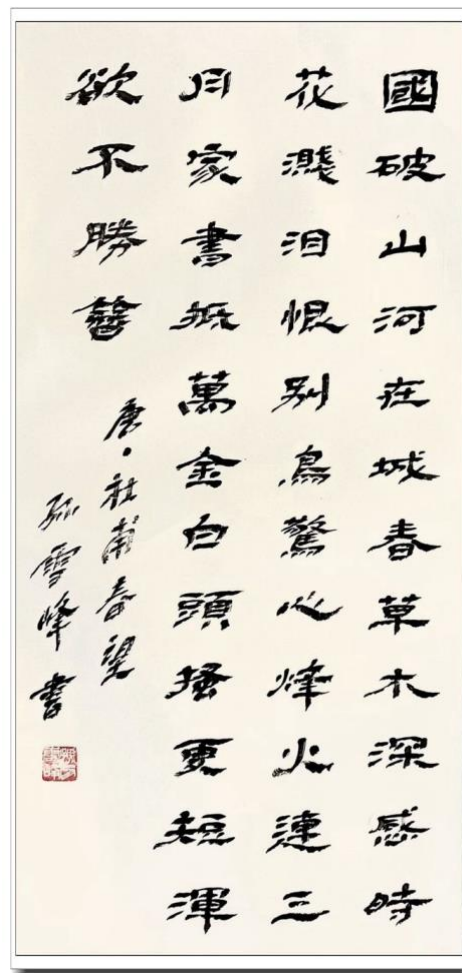 國破山河在城春草木深感時
花濺泪恨别鳥驚心烽火連三
月家書抵萬金白頭搔更短渾
欲不勝簪
唐·杜甫春望
孤雪峰書